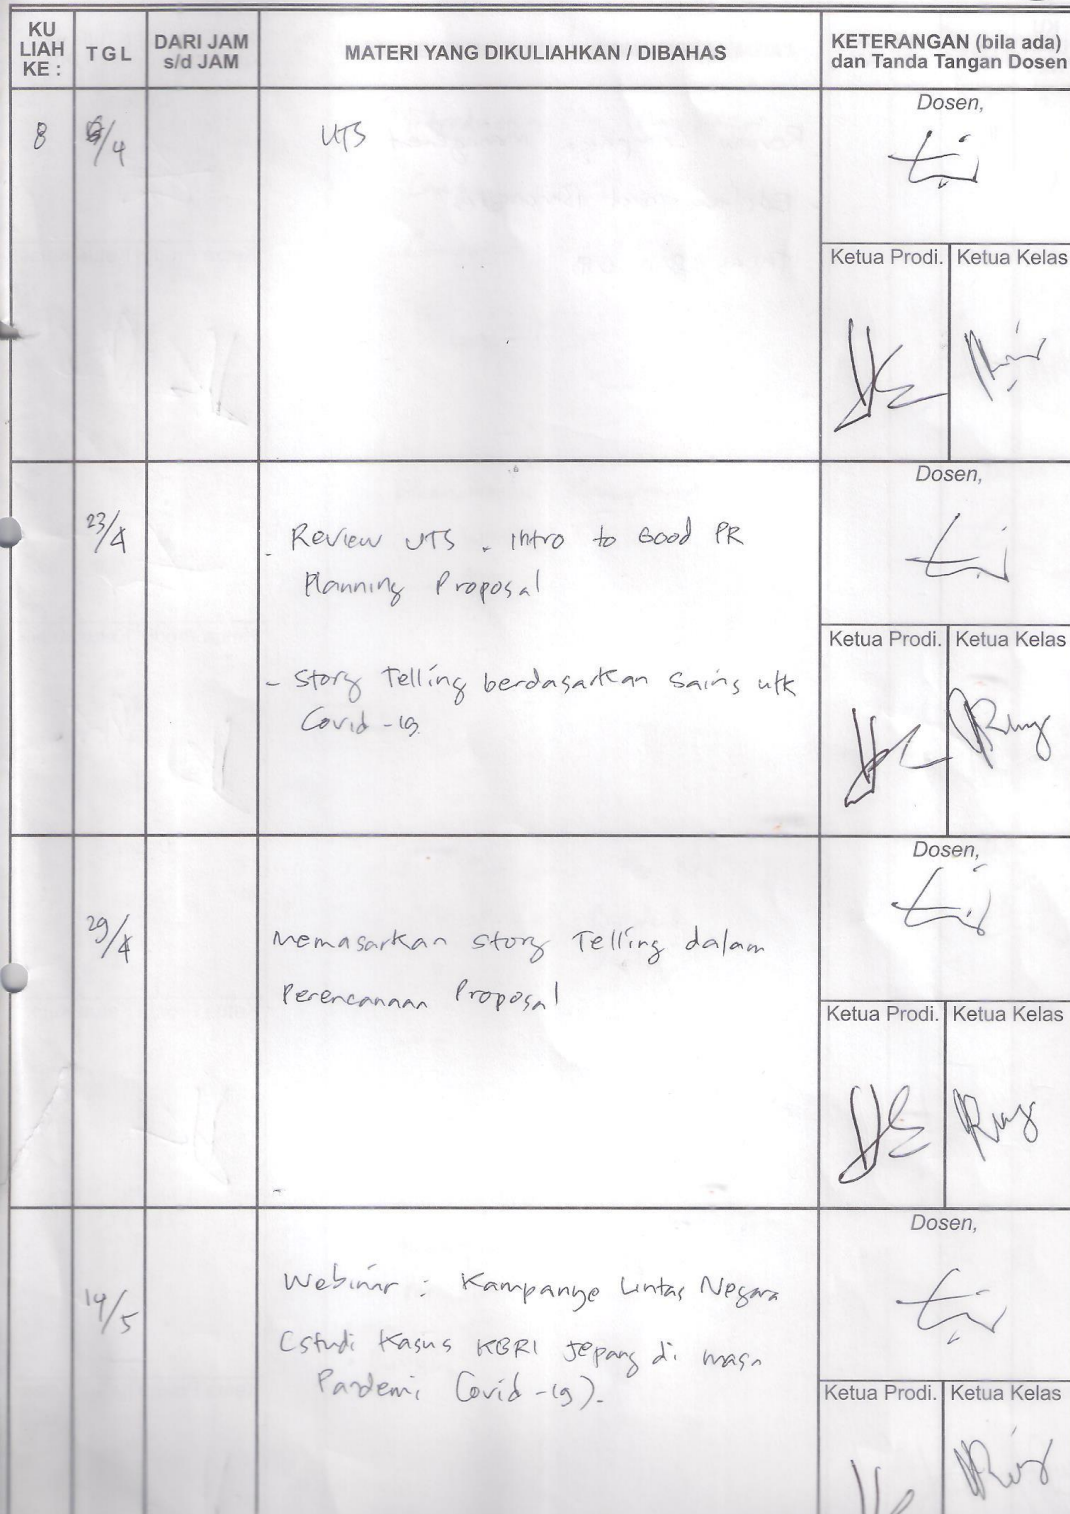 KU
LIAH
KE :
TGL
DARI JAM
s/d JAM
MATERI YANG DIKULIAHKAN / DIBAHAS
KETERANGAN (bila ada)
dan Tanda Tangan Dosen
8
/4
UTS
Dosen,
Ketua Prodi.
Ketua Kelas
23/4
- Review UTS . Intro to Good PR
Planning Proposal
- Story Telling berdasarkan Sains utk
Covid-19.
Dosen,
Ketua Prodi.
Ketua Kelas
29/4
Memasarkan Story Telling dalam
Perencanaan Proposal
Dosen,
Ketua Prodi.
Ketua Kelas
14/5
Webinar : Kampanye Lintas Negara
(Studi Kasus KBRI Jepang di masa
Pandemi Covid-19).
Dosen,
Ketua Prodi.
Ketua Kelas